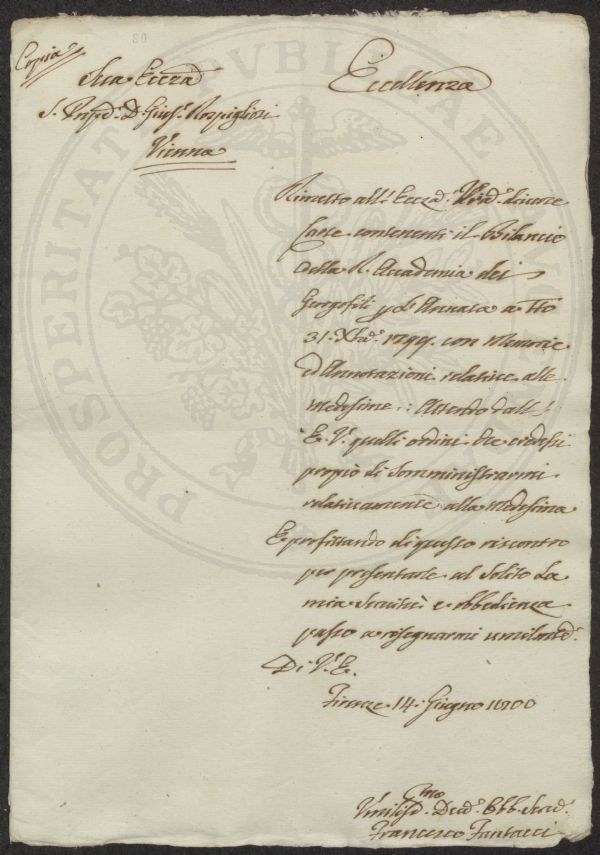 Copia
Sua Ecc.za
Eccellenza
S. Prnpe. D. Giusp.e Rospigliosi
Vienna
Rimetto all' Ecc.za V.ra
Carte contenenti il Bilancio
della R. Accademia dei
Georgofili p. l'Annata a tto
31. Xbre. 1799. con Memorie
ed Annotazioni relative alle
Medesime: Attendo dall'
E. V. quelli ordini che credessi
propio di somministrarmi
relativamente alla Medesima
E profittando di questo riscontro
per presentarle al solito la
mia servitù e obbedienza
passo a risegnarmi umilmte.
Di V. E.
Firenze 14. Giugno 1800
Umiliss.mo Dev. Obb. Serv.
Francesco Fantacci
PROSPERITATI PUBLICAE